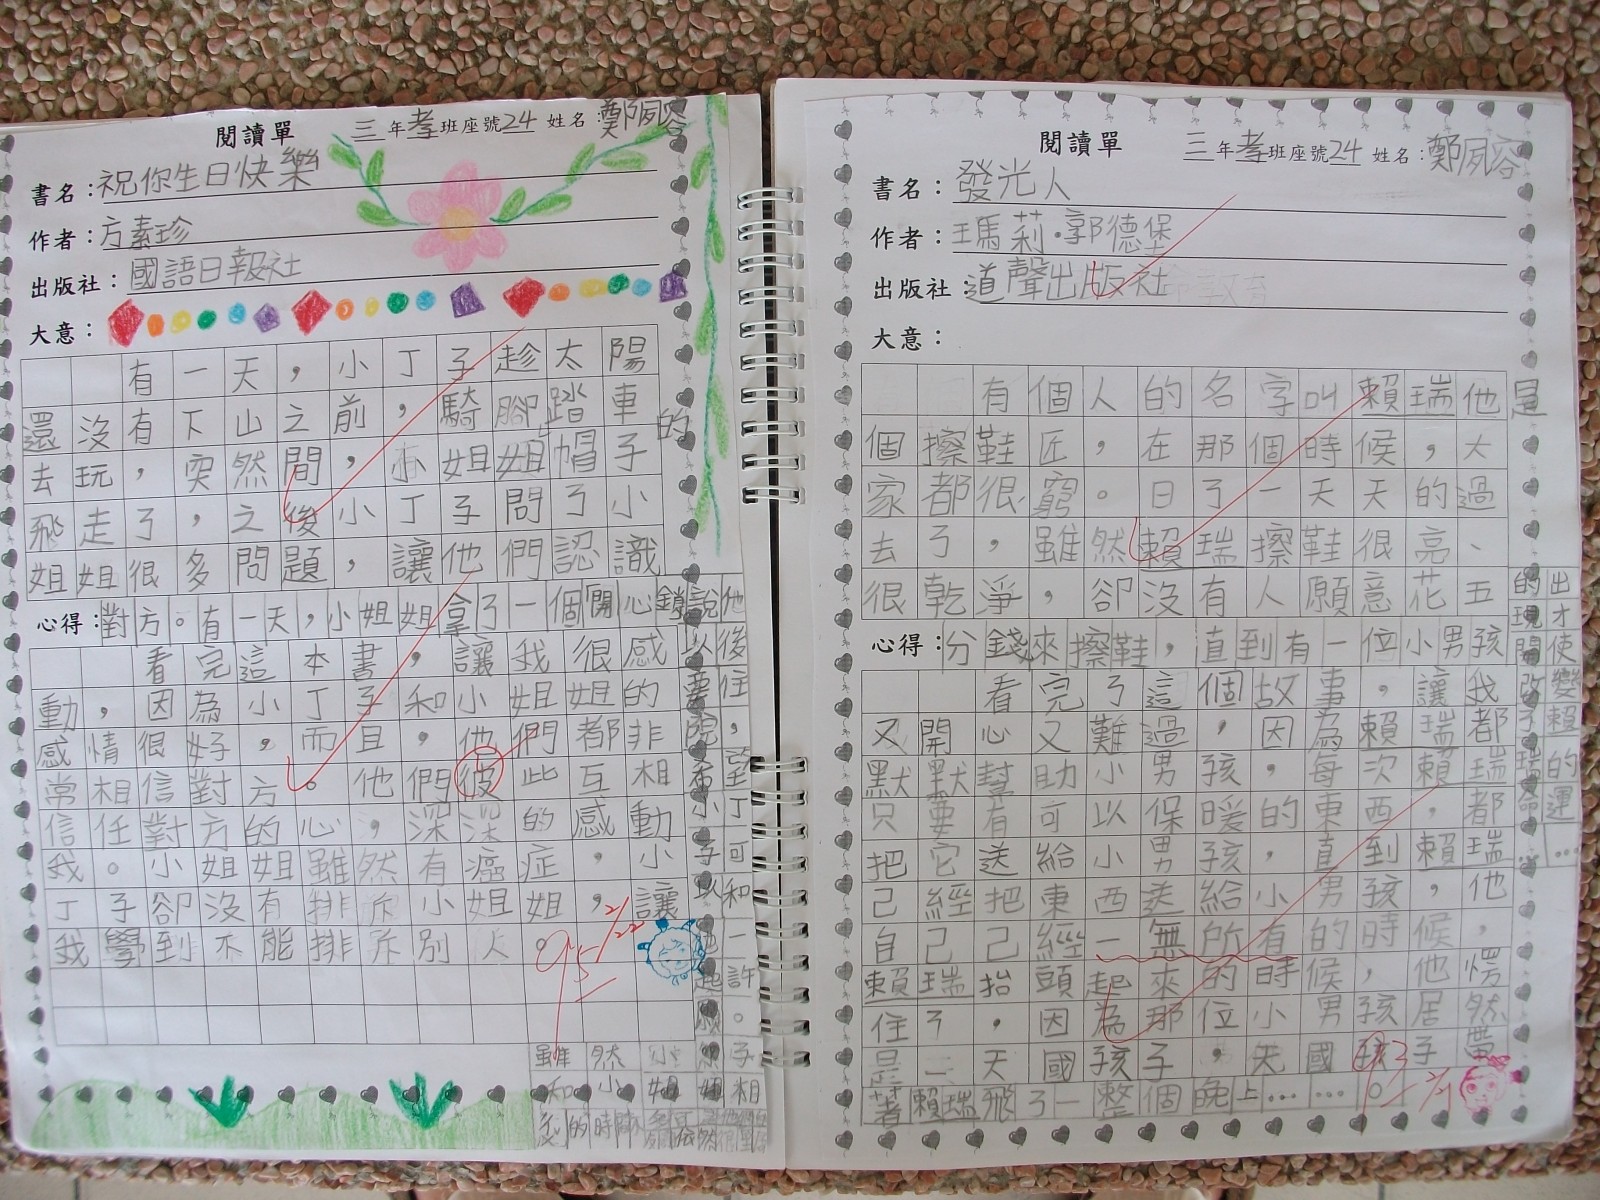 閱讀單
三年孝班座號24 姓名：鄭夙容
書名：祝你生日快樂
作者：方素珍
出版社：國語日報社
大意：
有一天，小丁子趁太陽
還沒有下山之前，騎腳踏車
去玩，突然間，小姐姐的帽子
飛走了，之後小丁子問了小
姐姐很多問題，讓他們認識
心得：對方。有一天，小姐姐拿了一個開心鎖說他
以後要住院，希望小丁子可以和他一起許願。
看完這本書，讓我很感
動，因為小丁子和小姐姐的
感情很好，而且，他們都非
常相信對方。他們彼此互相
信任對方的心，深深的感動
我。小姐姐雖然有癌症，小
丁子卻沒有排斥小姐姐，讓
我學到不能排斥別人。
95 2/22
雖然小丁子
和小姐姐相
處的時間
閱讀單
三年孝班座號24 姓名：鄭夙容
書名：發光人
作者：瑪莉·郭德堡
出版社：道聲出版社
大意：
有個人的名字叫賴瑞他是
個擦鞋匠，在那個時候，大
家都很窮。日子一天天的過
去了，雖然賴瑞擦鞋很亮、
很乾淨，卻沒有人願意花五
心得：分錢來擦鞋，直到有一位小男孩
的出現才開使改變了賴瑞的命運…
看完了這個故事，讓我
又開心又難過，因為賴瑞都
默默幫助小男孩，每次賴瑞
只要有可以保暖的東西，都
把它送給小男孩，直到賴瑞
已經把東西送給小男孩，他
自己已經一無所有的時候，
賴瑞抬頭起來的時候，他愣
住了，因為那位小男孩居然
是一天國孩子，天國孩子帶
著賴瑞飛了一整個晚上……。
93 2/21